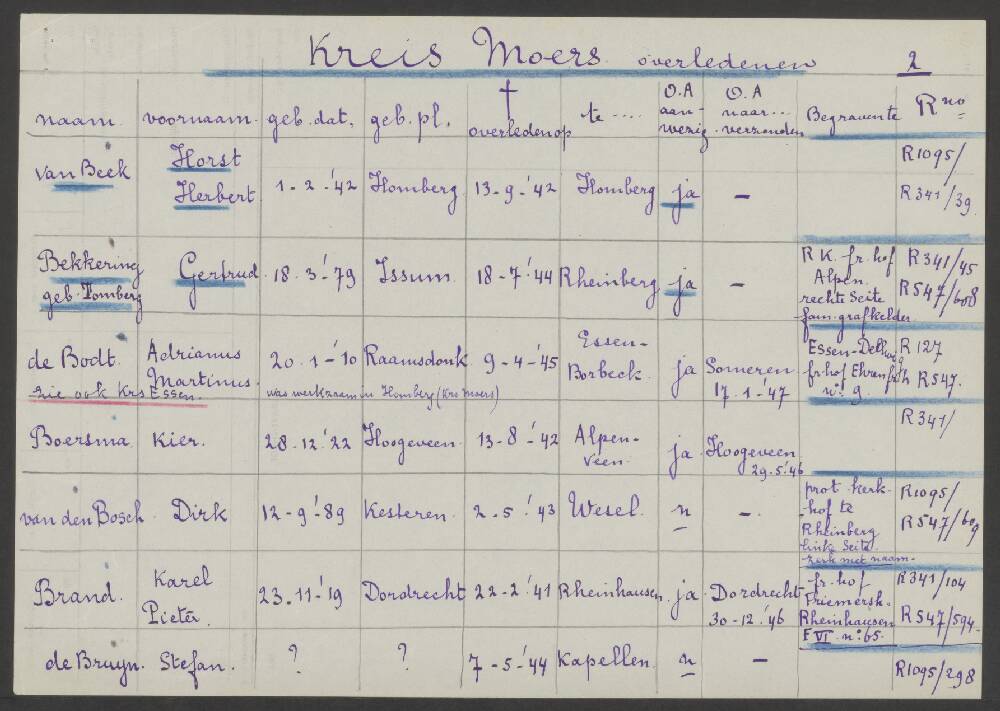 Kreis Moers overledenen 2
naam. voornaam. geb. dat. geb. pl. † overleden op te .... O.A aan- wezig O.A naar... verzonden Begraven te R no
van Beek Horst Herbert 1-2-'42 Homberg 13-9-'42 Homberg ja - R1095/ R341/39
Bekkering geb. Tomberg Gertrud 18-3-'79 Issum 18-7-'44 Rheinberg ja - R.K. fr. hof Alpen. rechte Seite fam. grafkelder R341/45 R547/608
de Bodt. Adrianus Martinus 20-1-'10 Raamsdonk 9-4-'45 Essen- Borbeck. ja Someren 17-1-'47 fr. hof no. 9. R127 R547.
zie ook Krs Essen. was werkzaam in Homberg (Krs Moers)
Boersma Kier. 28-12-'22 Hoogeveen 13-8-'42 Alpen- Veen. ja Hoogeveen 29-5-'46 R341/
van den Bosch Dirk 12-9-'89 Kesteren. 2-5-'43 Wesel. n - prot. kerk- hof te Rheinberg linke Seite. zerk met naam. R1095/ R547/609
Brand. Karel Pieter. 23-11-'19 Dordrecht 22-2-'41 Rheinhausen. ja Dordrecht 30-12-'46 fr. hof Friemersh. Rheinhausen F VI no. 65. R341/104 R547/594
de Bruyn. Stefan. ? ? 7-5-'44 Kapellen n - R1095/298